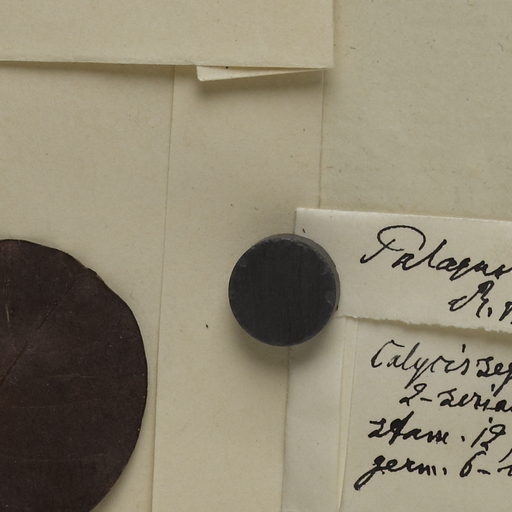 Palaqu
R. n
Calycis sep
2-seria
stam. 12
germ. 6-